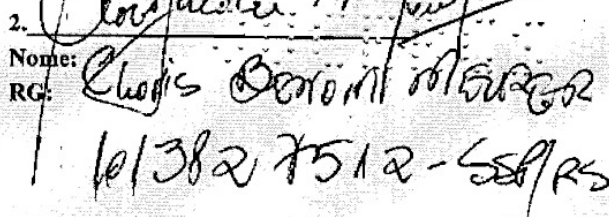 2.
Nome: Clovis Benomi Meurer
RG:
1013827512-SSP/RS